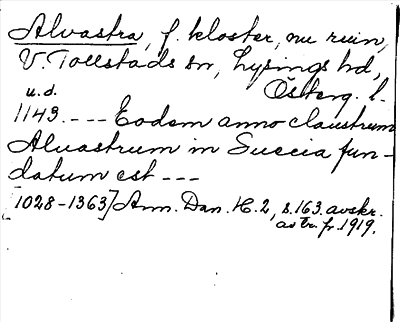 Alvastra, f. kloster, nu ruin,
V. Tollstads sn, Lysings hd,
Österg. l.
u.d.
1143. --- Eodem anno claustrum
Aluastrum in Suecia fun-
datum est ---
[1028-1363] Ann. Dan. H. 2, s. 163. avskr.
av Br. fr. 1919.